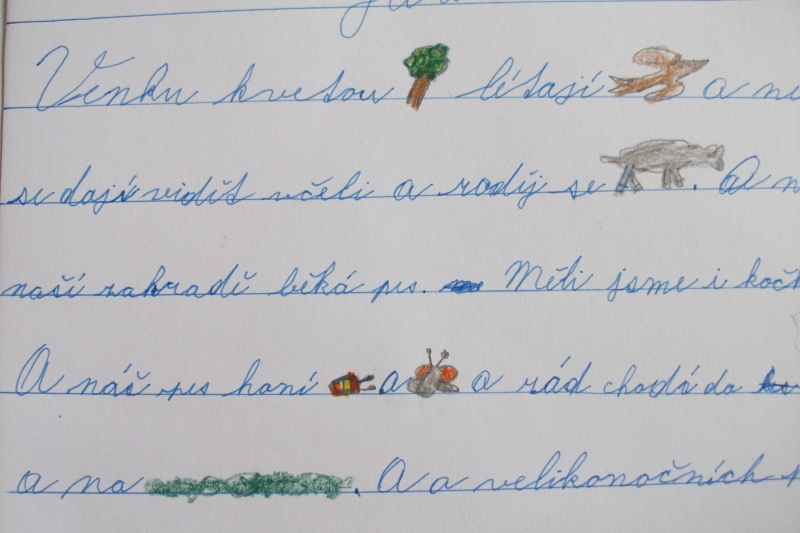 Venku kvetou létají a
se dají vidět včeli a rodij se . A
naší zahradě běká pes. Měli jsme i
A náš pes honí a a rád chodí do
a na . A o velikonočních